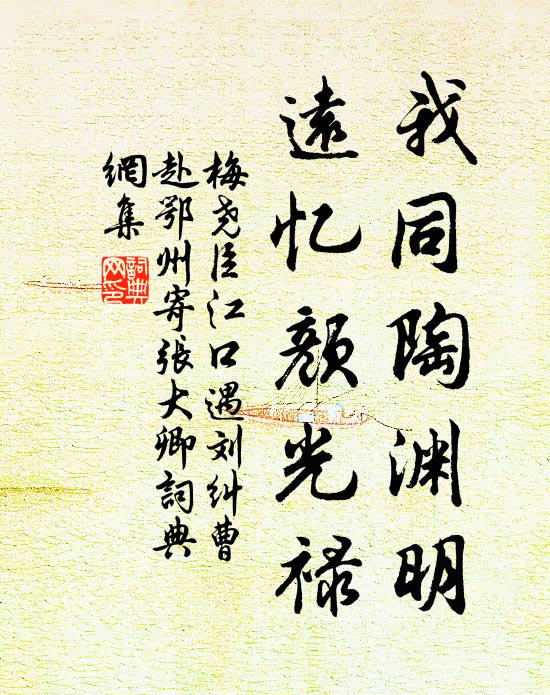 我同陶渊明
遠忆颜光禄
梅尧臣江口遇刘纠曹
赴鄂州寄張大卿詞典
網集
詞典
网印